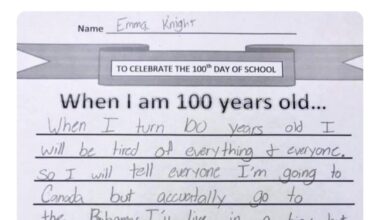 Name Emma Knight
TO CELEBRATE THE 100th DAY OF SCHOOL
When I am 100 years old...
When I turn 100 years old I
will be tired of everything & everyone.
so I will tell everyone I'm going to
Canada but accuertally go to
the Bahamas I'v live in a